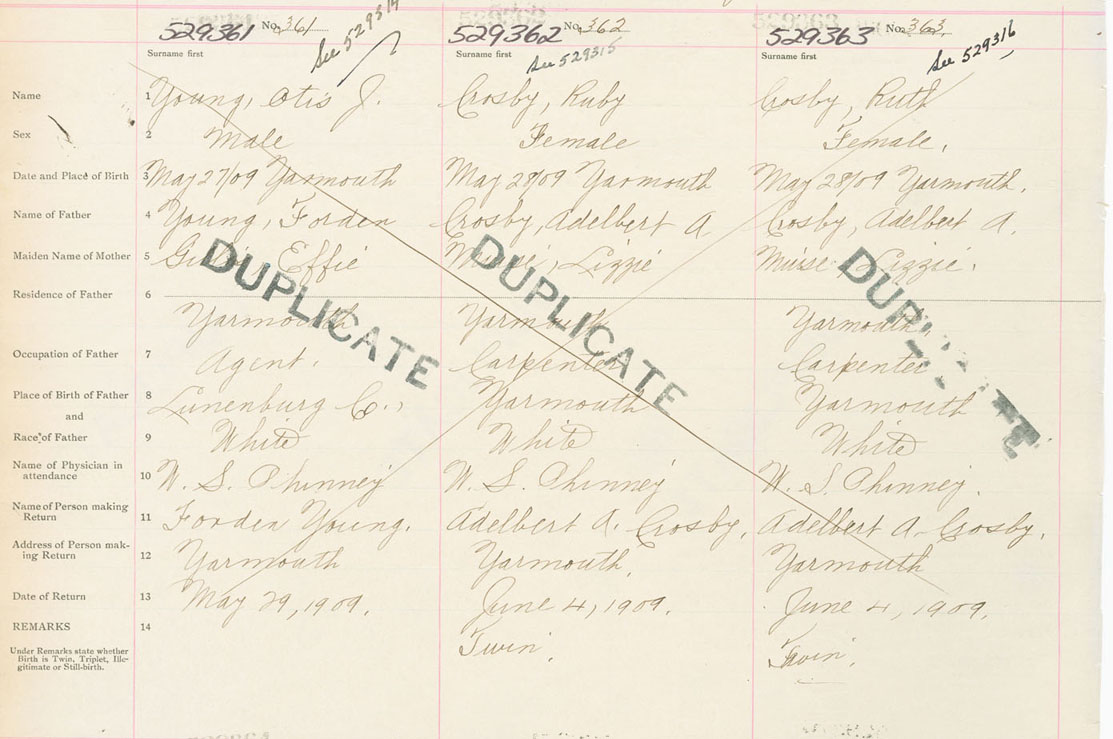 529361 No. 361 See 529314
529362 No. 362 See 529315
529363 No. 363. See 529316
Surname first Surname first Surname first
Name 1 Young, Otis J. Crosby, Ruby Crosby, Ruth
Sex 2 Male Female Female.
Date and Place of Birth 3 May 27/09 Yarmouth May 28/09 Yarmouth May 28/09 Yarmouth.
Name of Father 4 Young, Forden Crosby, Adelbert A Crosby, Adelbert A.
Maiden Name of Mother 5 Effie Lizzie Muise Lizzie.
Residence of Father 6
Yarmouth Yarmouth Yarmouth.
Occupation of Father 7 Agent. Carpenter Carpenter
Place of Birth of Father 8 Lunenburg Co., Yarmouth Yarmouth
and
Race of Father 9 White White White
Name of Physician in
attendance 10 W. S. Phinney W. S. Phinney W. S. Phinney.
Name of Person making
Return 11 Forden Young. Adelbert A. Crosby, Adelbert A. Crosby.
Address of Person mak-
ing Return 12 Yarmouth Yarmouth. Yarmouth
Date of Return 13 May 29, 1909. June 4, 1909. June 4, 1909.
REMARKS 14
Under Remarks state whether
Birth is Twin, Triplet, Ille-
gitimate or Still-birth.
Twin. Twin.
DUPLICATE
DUPLICATE
DUPLICATE